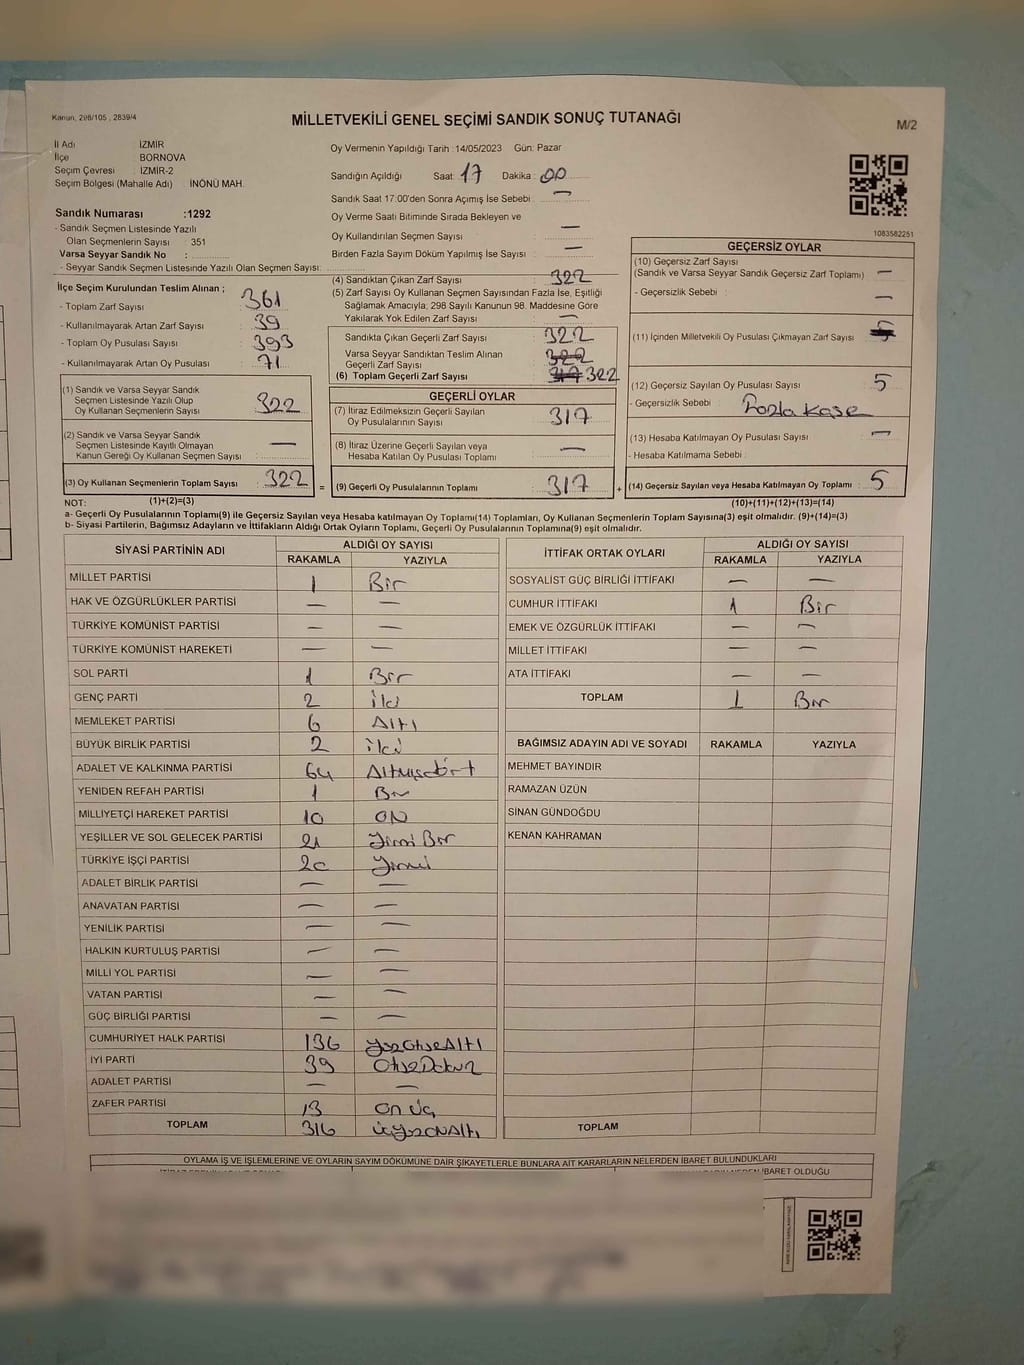 Kanun, 298/105 , 2839/4
MİLLETVEKİLİ GENEL SEÇİMİ SANDIK SONUÇ TUTANAĞI
M/2
İl Adı : İZMİR
İlçe : BORNOVA
Seçim Çevresi : İZMİR-2
Seçim Bölgesi (Mahalle Adı) : İNÖNÜ MAH.
Oy Vermenin Yapıldığı Tarih :14/05/2023 Gün: Pazar
Sandığın Açıldığı Saat: 17 Dakika : 00
Sandık Saat 17:00'den Sonra Açımış İse Sebebi : —
Oy Verme Saati Bitiminde Sırada Bekleyen ve
Oy Kullandırılan Seçmen Sayısı : —
Birden Fazla Sayım Döküm Yapılmış İse Sayısı : —
1083582251
Sandık Numarası :1292
- Sandık Seçmen Listesinde Yazılı
Olan Seçmenlerin Sayısı : 351
Varsa Seyyar Sandık No :
- Seyyar Sandık Seçmen Listesinde Yazılı Olan Seçmen Sayısı:
İlçe Seçim Kurulundan Teslim Alınan ;
- Toplam Zarf Sayısı : 361
- Kullanılmayarak Artan Zarf Sayısı : 39
- Toplam Oy Pusulası Sayısı : 393
- Kullanılmayarak Artan Oy Pusulası : 71
(1) Sandık ve Varsa Seyyar Sandık
Seçmen Listesinde Yazılı Olup
Oy Kullanan Seçmenlerin Sayısı : 322
(2) Sandık ve Varsa Seyyar Sandık
Seçmen Listesinde Kayıtlı Olmayan
Kanun Gereği Oy Kullanan Seçmen Sayısı : —
(3) Oy Kullanan Seçmenlerin Toplam Sayısı : 322 =
(1)+(2)=(3)
(4) Sandıktan Çıkan Zarf Sayısı : 322
(5) Zarf Sayısı Oy Kullanan Seçmen Sayısından Fazla İse, Eşitliği
Sağlamak Amacıyla, 298 Sayılı Kanunun 98. Maddesine Göre
Yakılarak Yok Edilen Zarf Sayısı : —
Sandıkta Çıkan Geçerli Zarf Sayısı : 322
Varsa Seyyar Sandıktan Teslim Alınan
Geçerli Zarf Sayısı : 322
(6) Toplam Geçerli Zarf Sayısı : 317 322
GEÇERLİ OYLAR
(7) İtiraz Edilmeksizin Geçerli Sayılan
Oy Pusulalarının Sayısı : 317
(8) İtiraz Üzerine Geçerli Sayılan veya
Hesaba Katılan Oy Pusulası Toplamı : —
(9) Geçerli Oy Pusulalarının Toplamı : 317 +
GEÇERSİZ OYLAR
(10) Geçersiz Zarf Sayısı :
(Sandık ve Varsa Seyyar Sandık Geçersiz Zarf Toplamı) —
- Geçersizlik Sebebi : —
(11) İçinden Milletvekili Oy Pusulası Çıkmayan Zarf Sayısı : 5
(12) Geçersiz Sayılan Oy Pusulası Sayısı : 5
- Geçersizlik Sebebi : Fazla Kaşe
(13) Hesaba Katılmayan Oy Pusulası Sayısı : —
- Hesaba Katılmama Sebebi :
(14) Geçersiz Sayılan veya Hesaba Katılmayan Oy Toplamı : 5
(10)+(11)+(12)+(13)=(14)
NOT:
a- Geçerli Oy Pusulalarının Toplamı(9) ile Geçersiz Sayılan veya Hesaba katılmayan Oy Toplamı(14) Toplamları, Oy Kullanan Seçmenlerin Toplam Sayısına(3) eşit olmalıdır. (9)+(14)=(3)
b- Siyasi Partilerin, Bağımsız Adayların ve İttifakların Aldığı Ortak Oyların Toplamı, Geçerli Oy Pusulalarının Toplamına(9) eşit olmalıdır.
SİYASİ PARTİNİN ADI ALDIĞI OY SAYISI
RAKAMLA YAZIYLA
MİLLET PARTİSİ 1 Bir
HAK VE ÖZGÜRLÜKLER PARTİSİ — —
TÜRKİYE KOMÜNİST PARTİSİ — —
TÜRKİYE KOMÜNİST HAREKETİ — —
SOL PARTİ 1 Bir
GENÇ PARTİ 2 İki
MEMLEKET PARTİSİ 6 Altı
BÜYÜK BİRLİK PARTİSİ 2 iki
ADALET VE KALKINMA PARTİSİ 64 Altmışdört
YENİDEN REFAH PARTİSİ 1 Bir
MİLLİYETÇİ HAREKET PARTİSİ 10 ON
YEŞİLLER VE SOL GELECEK PARTİSİ 21 Yirmi Bir
TÜRKİYE İŞÇİ PARTİSİ 20 Yirmi
ADALET BİRLİK PARTİSİ — —
ANAVATAN PARTİSİ — —
YENİLİK PARTİSİ — —
HALKIN KURTULUŞ PARTİSİ — —
MİLLİ YOL PARTİSİ — —
VATAN PARTİSİ — —
GÜÇ BİRLİĞİ PARTİSİ — —
CUMHURİYET HALK PARTİSİ 136 YüzOtuzAltı
İYİ PARTİ 39 OtuzDokuz
ADALET PARTİSİ — —
ZAFER PARTİSİ 13 On Üç
TOPLAM 316 ÜçYüzONAltı
İTTİFAK ORTAK OYLARI ALDIĞI OY SAYISI
RAKAMLA YAZIYLA
SOSYALİST GÜÇ BİRLİĞİ İTTİFAKI — —
CUMHUR İTTİFAKI 1 Bir
EMEK VE ÖZGÜRLÜK İTTİFAKI — —
MİLLET İTTİFAKI — —
ATA İTTİFAKI — —
TOPLAM 1 Bir
BAĞIMSIZ ADAYIN ADI VE SOYADI RAKAMLA YAZIYLA
MEHMET BAYINDIR
RAMAZAN ÜZÜN
SİNAN GÜNDOĞDU
KENAN KAHRAMAN
TOPLAM
OYLAMA İŞ VE İŞLEMLERİNE VE OYLARIN SAYIM DÖKÜMÜNE DAİR ŞİKAYETLERLE BUNLARA AİT KARARLARIN NELERDEN İBARET BULUNDUKLARI
İBARET OLDUĞU